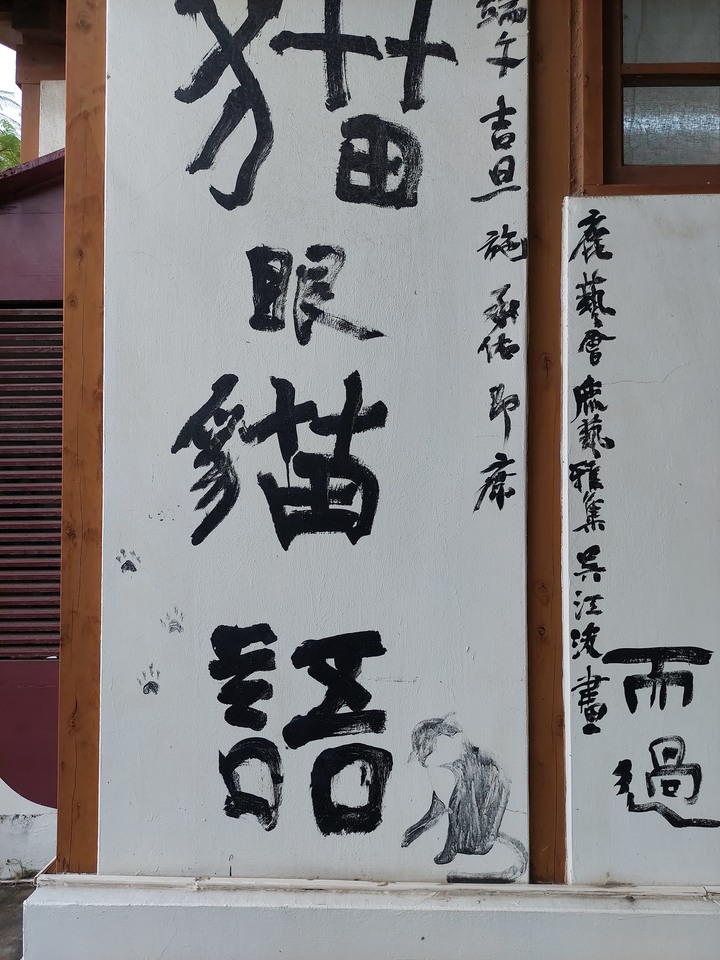 猫眼貓語
端午 吉旦 施 承佑 即席
鹿藝會 鹿藝雅集 吳江波 畫
而過